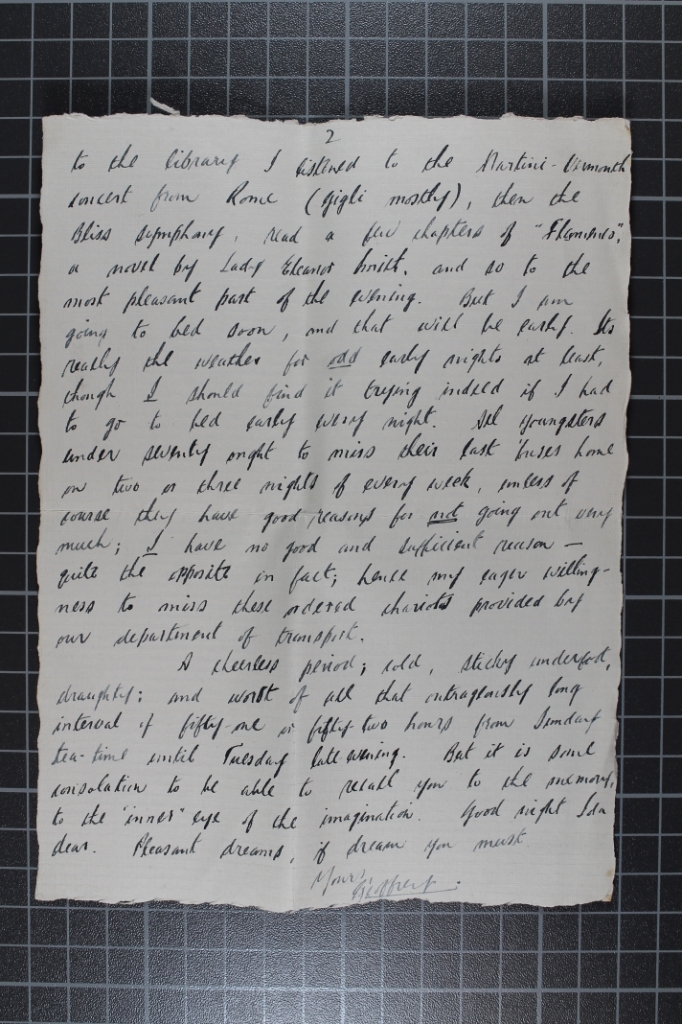 2
to the library I listened to the Martini-Vermouth
concert from Rome (Gigli mostly), then the
Bliss symphony, read a few chapters of "Flamenco",
a novel by Lady Eleanor Smith, and so to the
most pleasant part of the evening. But I am
going to bed soon, and that will be early. Its
really the weather for odd early nights at least,
though I should find it trying indeed if I had
to go to bed early every night. All youngsters
under seventy ought to miss their last 'buses home
on two or three nights of every week, unless of
course they have good reasons for not going out very
much; I have no good and sufficient reason —
quite the opposite in fact; hence my eager willing-
ness to miss these ordered chariots provided by
our department of transport.
A cheerless period; cold, sticky underfoot,
draughty; and worst of all that outrageously long
interval of fifty-one or fifty-two hours from Sunday
tea-time until Tuesday late-evening. But it is some
consolation to be able to recall you to the memory,
to the "inner" eye of the imagination. Good night Ida
dear. Pleasant dreams, if dream you must
Yours,
Geoffrey.